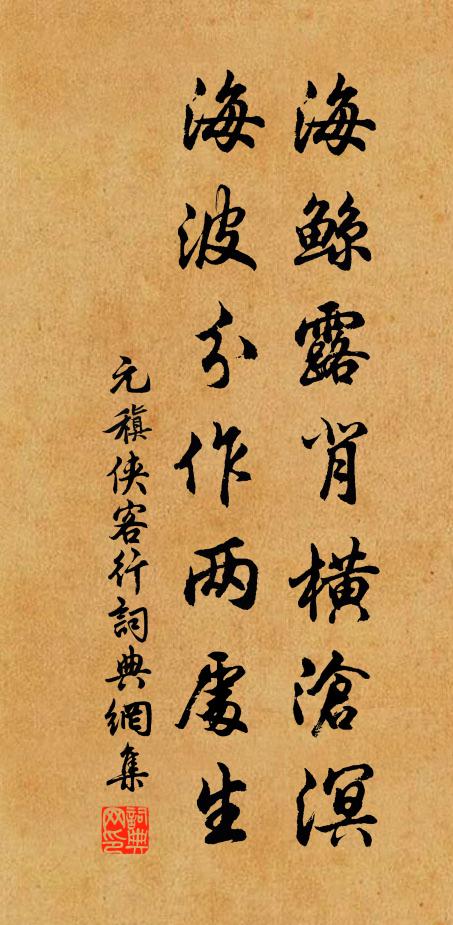 海鲸露背橫滄溟
海波分作两處生
元稹侠客行詞典網集
詞典网印